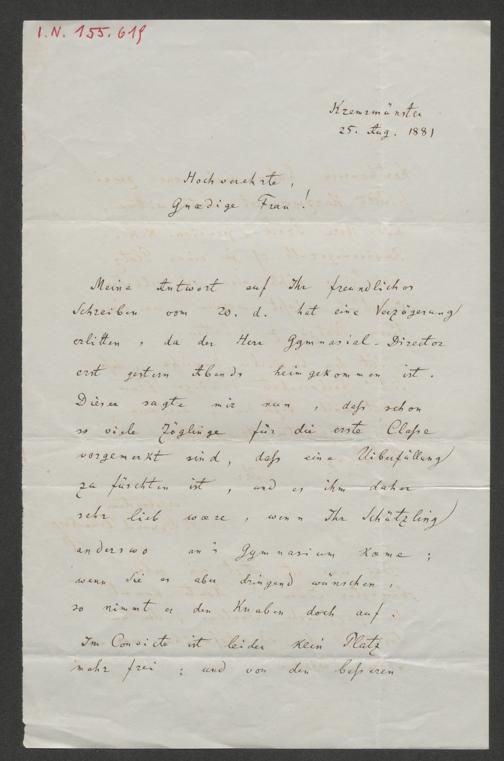 I.N. 155.619
Kremsmünster
25. Aug. 1881
Hochverehrte,
Gnædige Frau!
Meine Antwort auf Ihr freundliches
Schreiben vom 20. d. hat eine Verzögerung
erlitten, da der Herr Gymnasial-Director
erst gestern Abends heimgekommen ist.
Dieser sagte mir nun, daſs schon
so viele Zöglinge für die erste Claſse
vorgemerkt sind, daſs eine Uiberfüllung
zu fürchten ist, und es ihm daher
sehr lieb wære, wenn Ihr Schützling
anderswo an's Gymnasium kæme;
wenn Sie es aber dringend wünschen,
so nimmt er den Knaben doch auf.
Im Convicte ist leider kein Platz
mehr frei; und von den beſseren